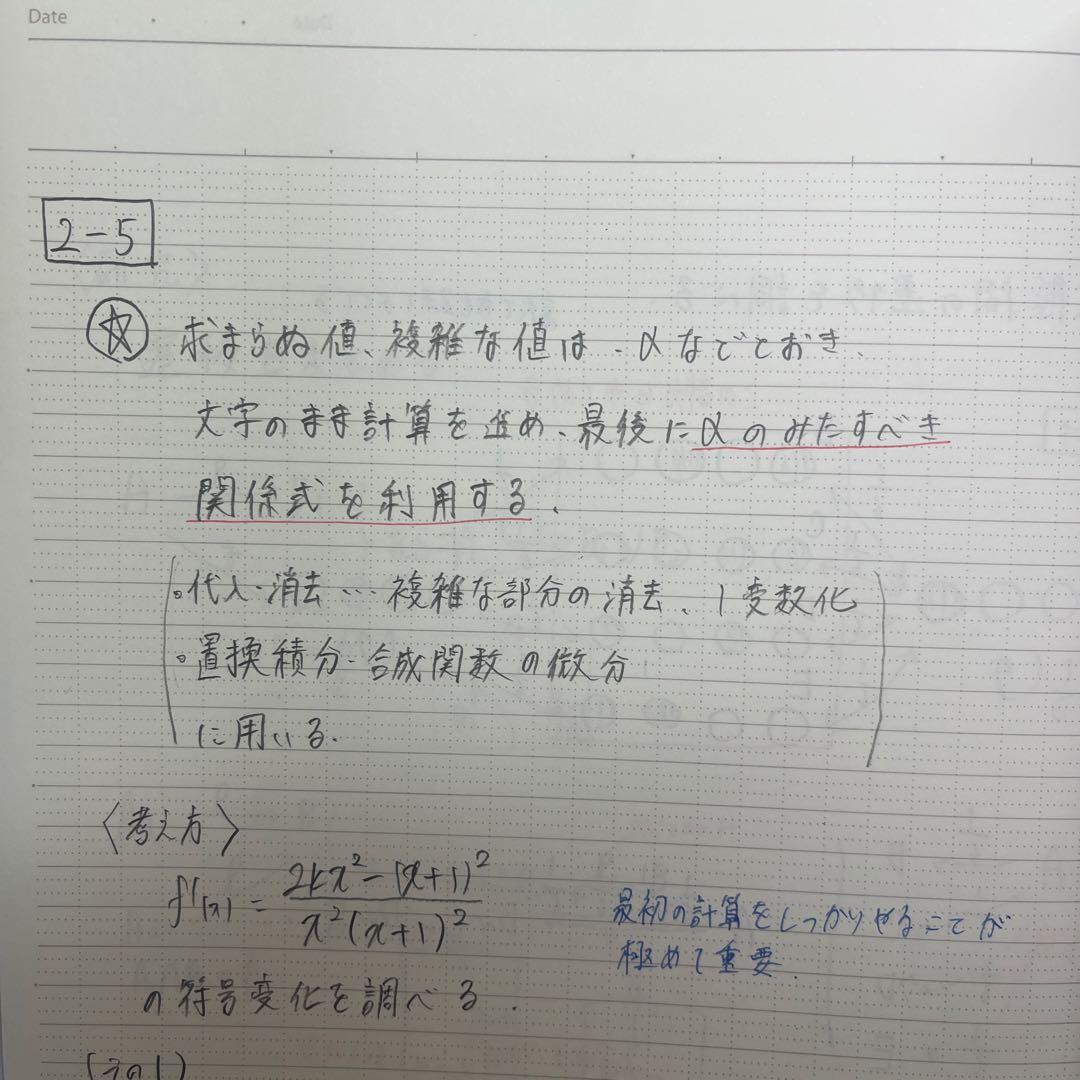 Date
2-5
☆ 求まらぬ値、複雑な値は、αなどとおき、
文字のまま計算を進め、最後にαのみたすべき
関係式を利用する.
。代入・消去…複雑な部分の消去、1変数化
。置換積分・合成関数の微分
に用いる.
〈考え方〉
f'(x) = \frac{2kx^2-(x+1)^2}{x^2(x+1)^2}
最初の計算をしっかりやることが
極めて重要.
の符号変化を調べる.
(その1)